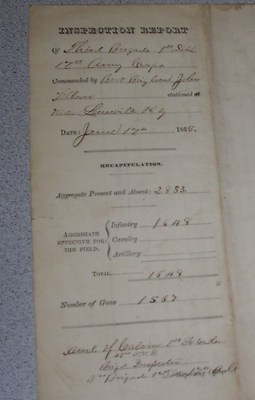 INSPECTION REPORT
Of Third Brigade 1st Div
17th Army Corps
Commanded by Bvt Brig Genl John
Tillson stationed at
near Louisville Ky
DATE: June 17th 186
RECAPITULATION.
Aggregate Present and Absent: 2852
AGGREGATE EFFECTIVE FOR THE FIELD.
Infantry 1648
Cavalry
Artillery
TOTAL 1648
Number of Guns 1557
of
Brigd Inspector
3rd Brigade 1st